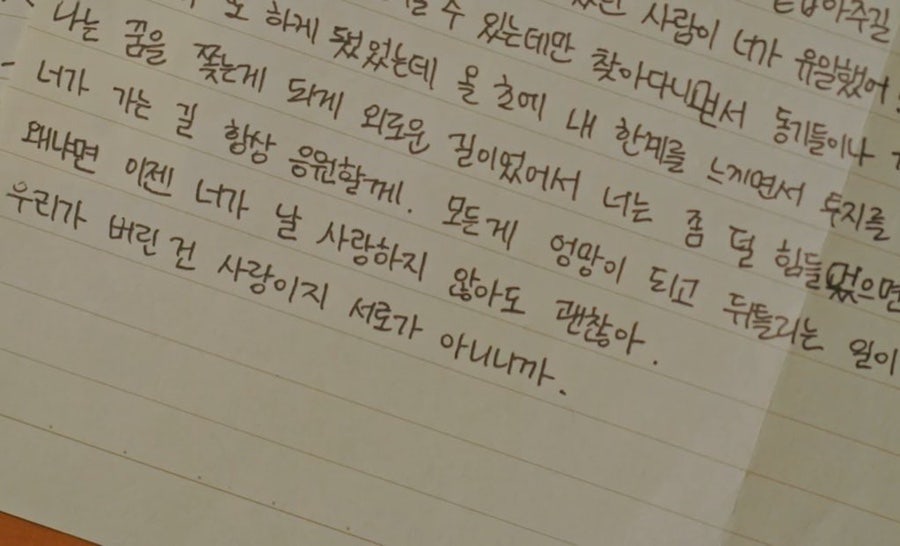 사람이 너가 유일했어
수 있는데만 찾아다니면서 동기들이나
또 하게 됐었는데 올 초에 내 한계를 느끼면서 투지를
나는 꿈을 쫓는게 되게 외로운 길이었어서 너는 좀 덜 힘들었으면
- 너가 가는 길 항상 응원할게. 모든게 엉망이 되고 뒤틀리는 일이
왜냐면 이젠 너가 날 사랑하지 않아도 괜찮아.
우리가 버린 건 사랑이지 서로가 아니니까.